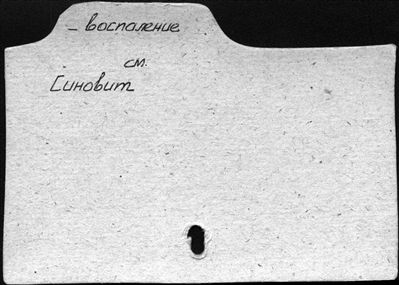 – воспаление
см.
Синовит